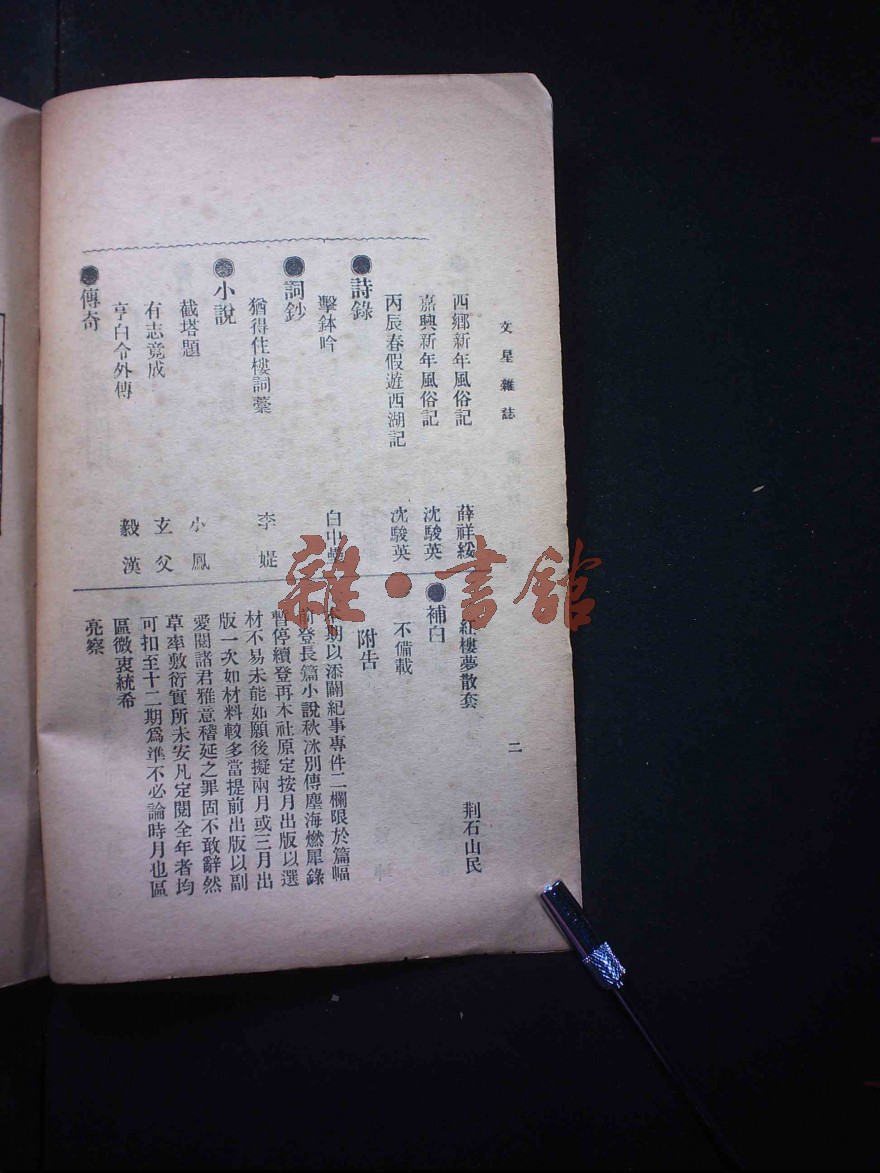 文星雜誌
二
西鄉新年風俗記　薛祥綏
嘉興新年風俗記　沈駿英
丙辰春假遊西湖記　沈駿英
詩錄
擊鉢吟　白中
詞鈔
猶得住樓詞藁　李媞
小說
截塔題　小鳳
有志竟成　玄父
亨白令外傳　毅漢
傳奇
紅樓夢散套　荆石山民
補白
不備載
附告
期以添闢紀事專件二欄限於篇幅
前登長篇小說秋冰別傳塵海燃犀錄
暫停續登再本社原定按月出版以選
材不易未能如願後擬兩月或三月出
版一次如材料較多當提前出版以副
愛閱諸君雅意稽延之罪固不敢辭然
草率敷衍實所未安凡定閱全年者均
可扣至十二期爲準不必論時月也區
區微衷統希
亮察
雜·書館